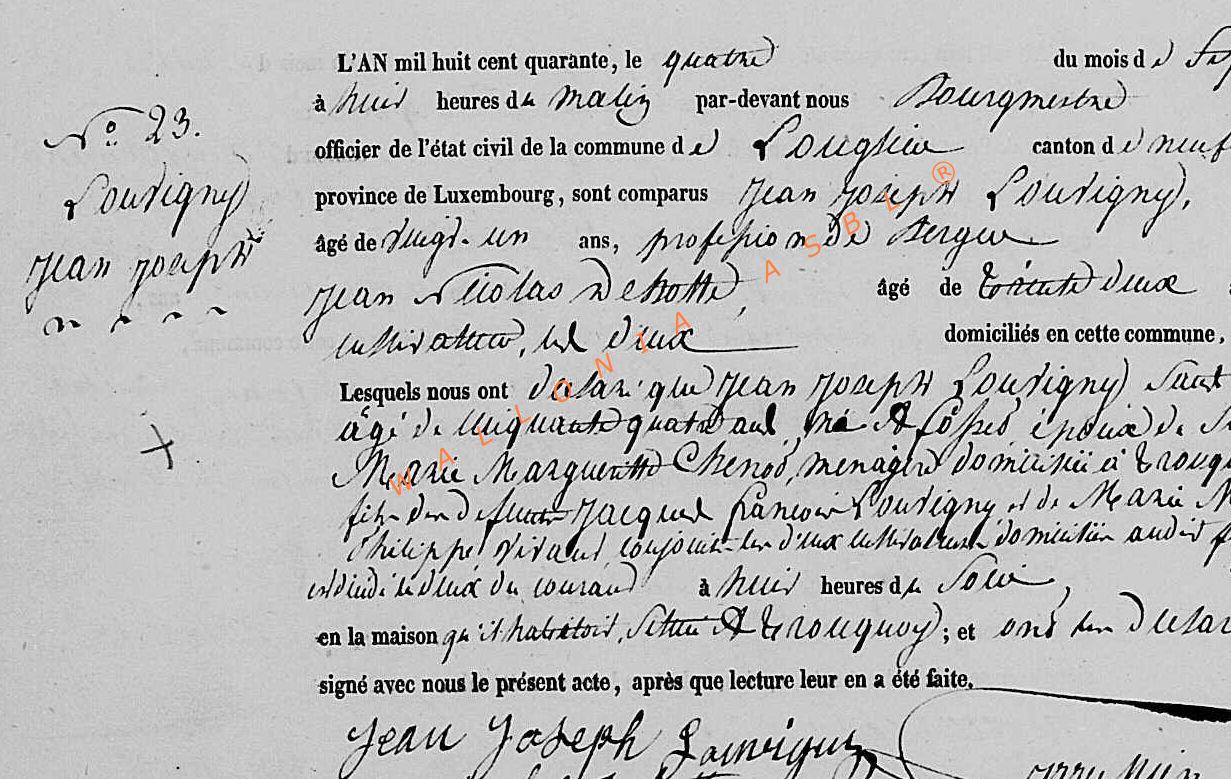 N° 23.
Louvigny
Jean Joseph
L'AN mil huit cent quarante, le quatre du mois de
à huit heures du matin par-devant nous Bourgmestre
officier de l'état civil de la commune de Longlier canton de neuf
province de Luxembourg, sont comparus Jean Joseph Louvigny,
âgé de vingt-un ans, profession de Berger
Jean Nicolas Dehotte, âgé de trente deux
cultivateur, les deux domiciliés en cette commune,
Lesquels nous ont déclaré que Jean Joseph Louvigny
âgé de cinquante quatre ans, né à fossés, époux de
Marie Marguerite Chenot, menagère domiciliée à
fils des défunts Jacques françois Louvigny et de Marie
Philippe vivant conjoints les deux cultivateurs domiciliés audit
est décédé le deux du courant à huit heures du Soir,
en la maison qu'il habitoit, Située à tronquoy; et ont les
signé avec nous le présent acte, après que lecture leur en a été faite.
Jean Joseph Louvigny
WALLONIA ASBL ®